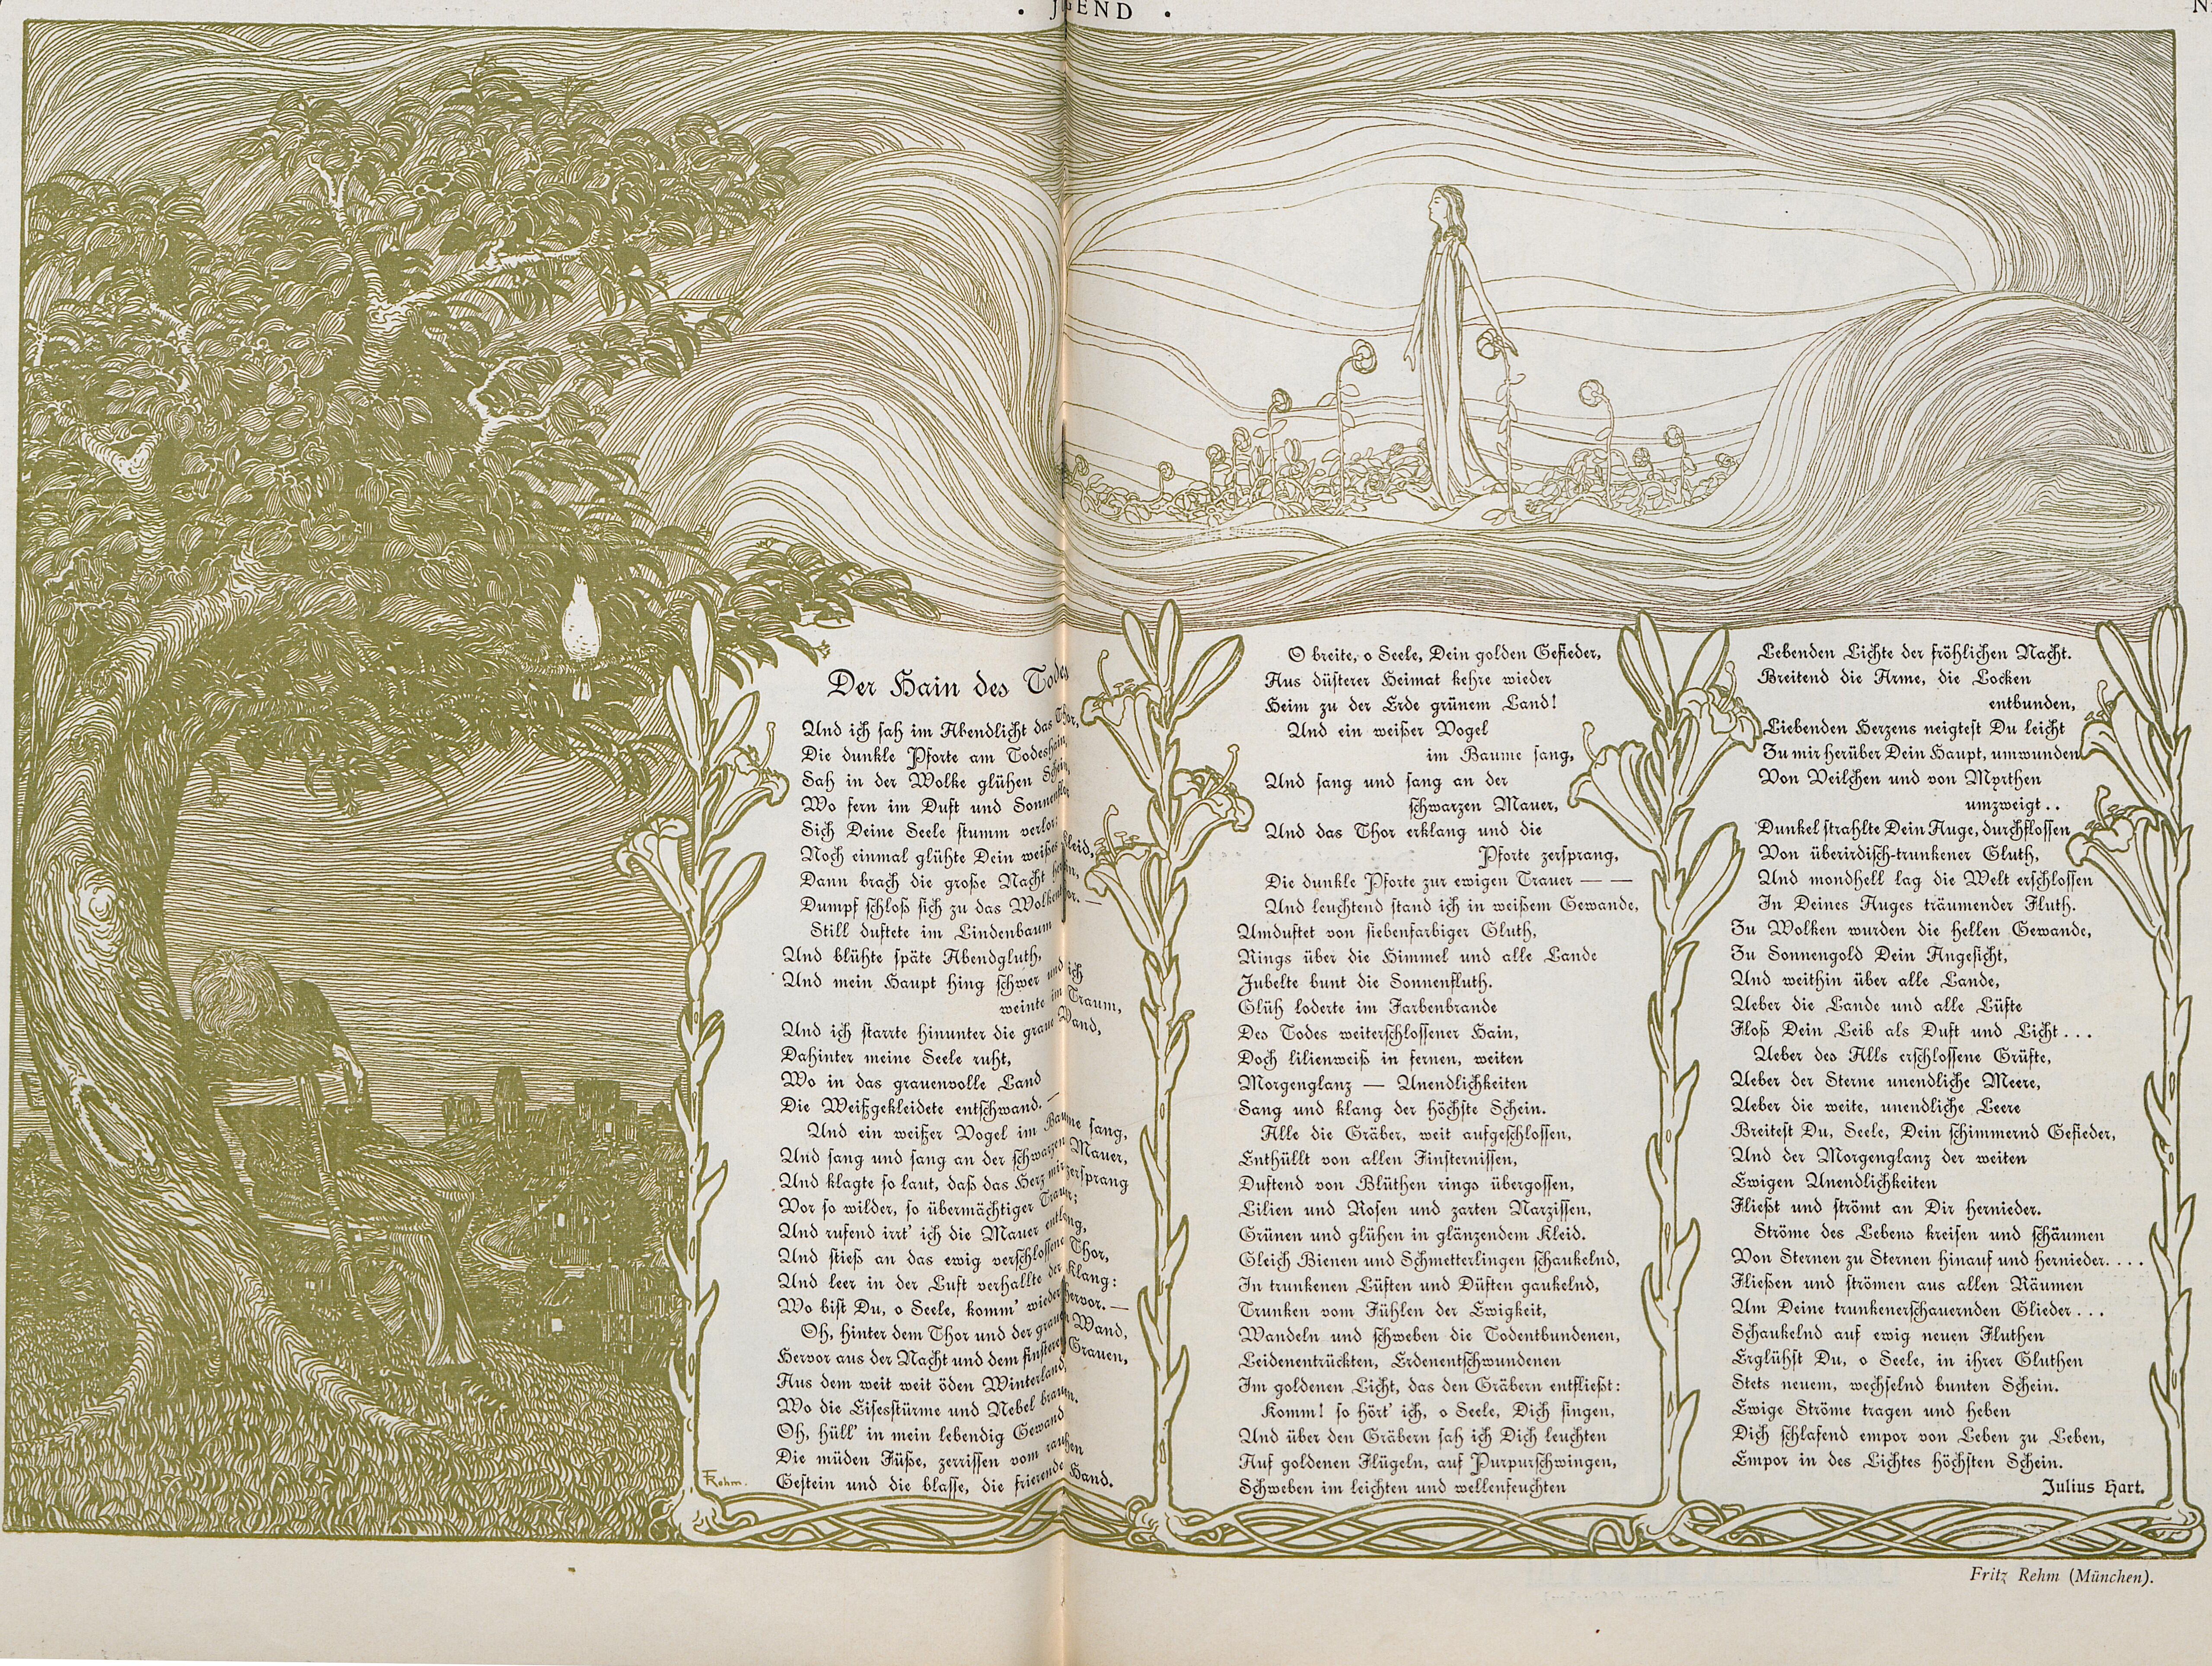 JUGEND
Der Hain des Todes
Und ich sah im Abendlicht das Thor,
Die dunkle Pforte am Todeshain,
Sah in der Wolke glühen Schein,
Wo fern im Duft und Sonnenflor
Sich Deine Seele stumm verlor:
Noch einmal glühte Dein weißes Kleid,
Dann brach die große Nacht herein,
Dumpf schloß sich zu das Wolkenthor. —
Still duftete im Lindenbaum
Und blühte späte Abendgluth,
Und mein Haupt hing schwer und ich
weinte im Traum,
Und ich starrte hinunter die graue Wand,
Dahinter meine Seele ruht,
Wo in das grauenvolle Land
Die Weißgekleidete entschwand. —
Und ein weißer Vogel im Baume sang,
Und sang und sang an der schwarzen Mauer,
Und klagte so laut, daß das Herz mir zersprang
Vor so wilder, so übermächtiger Trauer:
Und rufend irrt' ich die Mauer entlang,
Und stieß an das ewig verschlossene Thor,
Und leer in der Luft verhallte der Klang:
Wo bist Du, o Seele, komm' wieder hervor. —
Oh, hinter dem Thor und der grauen Wand,
Hervor aus der Nacht und dem finsteren Grauen,
Aus dem weit weit öden Winterland,
Wo die Eisesstürme und Nebel brauen.
Oh, hüll' in mein lebendig Gewand
Die müden Füße, zerrissen vom rauhen
Gestein und die blasse, die frierende Hand.
O breite, o Seele, Dein golden Gefieder,
Aus düsterer Heimat kehre wieder
Heim zu der Erde grünem Land!
Und ein weißer Vogel
im Baume sang,
Und sang und sang an der
schwarzen Mauer,
Und das Thor erklang und die
Pforte zersprang,
Die dunkle Pforte zur ewigen Trauer — —
Und leuchtend stand ich in weißem Gewande,
Umduftet von siebenfarbiger Gluth,
Rings über die Himmel und alle Lande
Jubelte bunt die Sonnenfluth.
Glüh loderte im Farbenbrande
Des Todes weiterschlossener Hain,
Doch lilienweiß in fernen, weiten
Morgenglanz — Unendlichkeiten
Sang und klang der höchste Schein.
Alle die Gräber, weit aufgeschlossen,
Enthüllt von allen Finsternissen,
Duftend von Blüthen rings übergossen,
Lilien und Rosen und zarten Narzissen,
Grünen und glühen in glänzendem Kleid.
Gleich Bienen und Schmetterlingen schaukelnd,
In trunkenen Lüften und Düften gaukelnd,
Trunken vom Fühlen der Ewigkeit,
Wandeln und schweben die Todentbundenen,
Leidenentrückten, Erdenentschwundenen
Im goldenen Licht, das den Gräbern entfließt:
Komm! so hört' ich, o Seele, Dich singen,
Und über den Gräbern sah ich Dich leuchten
Auf goldenen Flügeln, auf Purpurschwingen,
Schweben im leichten und wellenfeuchten
Lebenden Lichte der fröhlichen Nacht.
Breitend die Arme, die Locken
entbunden,
Liebenden Herzens neigtest Du leicht
Zu mir herüber Dein Haupt, umwunden
Von Veilchen und von Myrthen
umzweigt..
Dunkel strahlte Dein Auge, durchflossen
Von überirdisch-trunkener Gluth,
Und mondhell lag die Welt erschlossen
In Deines Auges träumender Fluth.
Zu Wolken wurden die hellen Gewande,
Zu Sonnengold Dein Angesicht,
Und weithin über alle Lande,
Ueber die Lande und alle Lüfte
Floß Dein Leib als Duft und Licht...
Ueber des Alls erschlossene Grüfte,
Ueber der Sterne unendliche Meere,
Ueber die weite, unendliche Leere
Breitest Du, Seele, Dein schimmernd Gefieder,
Und der Morgenglanz der weiten
Ewigen Unendlichkeiten
Fließt und strömt an Dir hernieder.
Ströme des Lebens kreisen und schäumen
Von Sternen zu Sternen hinauf und hernieder....
Fließen und strömen aus allen Räumen
Um Deine trunkenerschauernden Glieder...
Schaukelnd auf ewig neuen Fluthen
Erglühst Du, o Seele, in ihrer Gluthen
Stets neuem, wechselnd bunten Schein.
Ewige Ströme tragen und heben
Dich schlafend empor von Leben zu Leben,
Empor in des Lichtes höchsten Schein.
Julius Hart.
F Rehm.
Fritz Rehm (München).